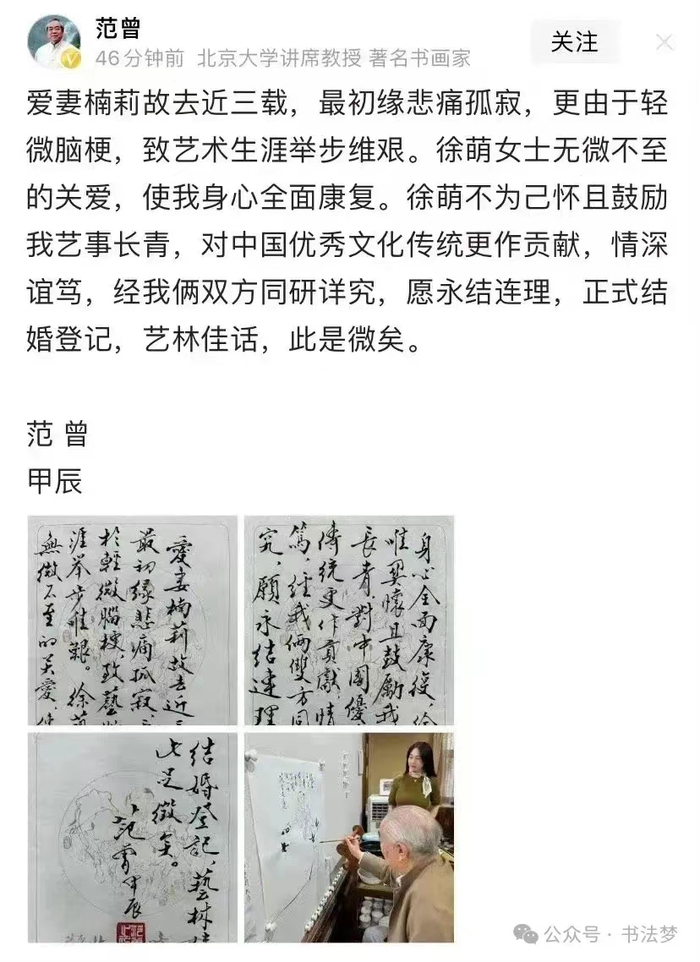 范曾
46分钟前 北京大学讲席教授 著名书画家
关注
爱妻楠莉故去近三载，最初缘悲痛孤寂，更由于轻
微脑梗，致艺术生涯举步维艰。徐萌女士无微不至
的关爱，使我身心全面康复。徐萌不为己怀且鼓励
我艺事长青，对中国优秀文化传统更作贡献，情深
谊笃，经我俩双方同研详究，愿永结连理，正式结
婚登记，艺林佳话，此是微矣。
范 曾
甲辰
愛妻楠莉故去近三
最初缘悲痛孤寂，
於輕微腦梗，致藝
涯举步維艱。徐
無微不至的关爱，
身心全面康復，徐
懷且鼓勵我
長青，對中國優
傳統更作貢獻，情
篤，經我俩雙方同
究，願永结連理
结婚登记，藝林
此是微矣。
范曾甲辰
公众号·书法梦